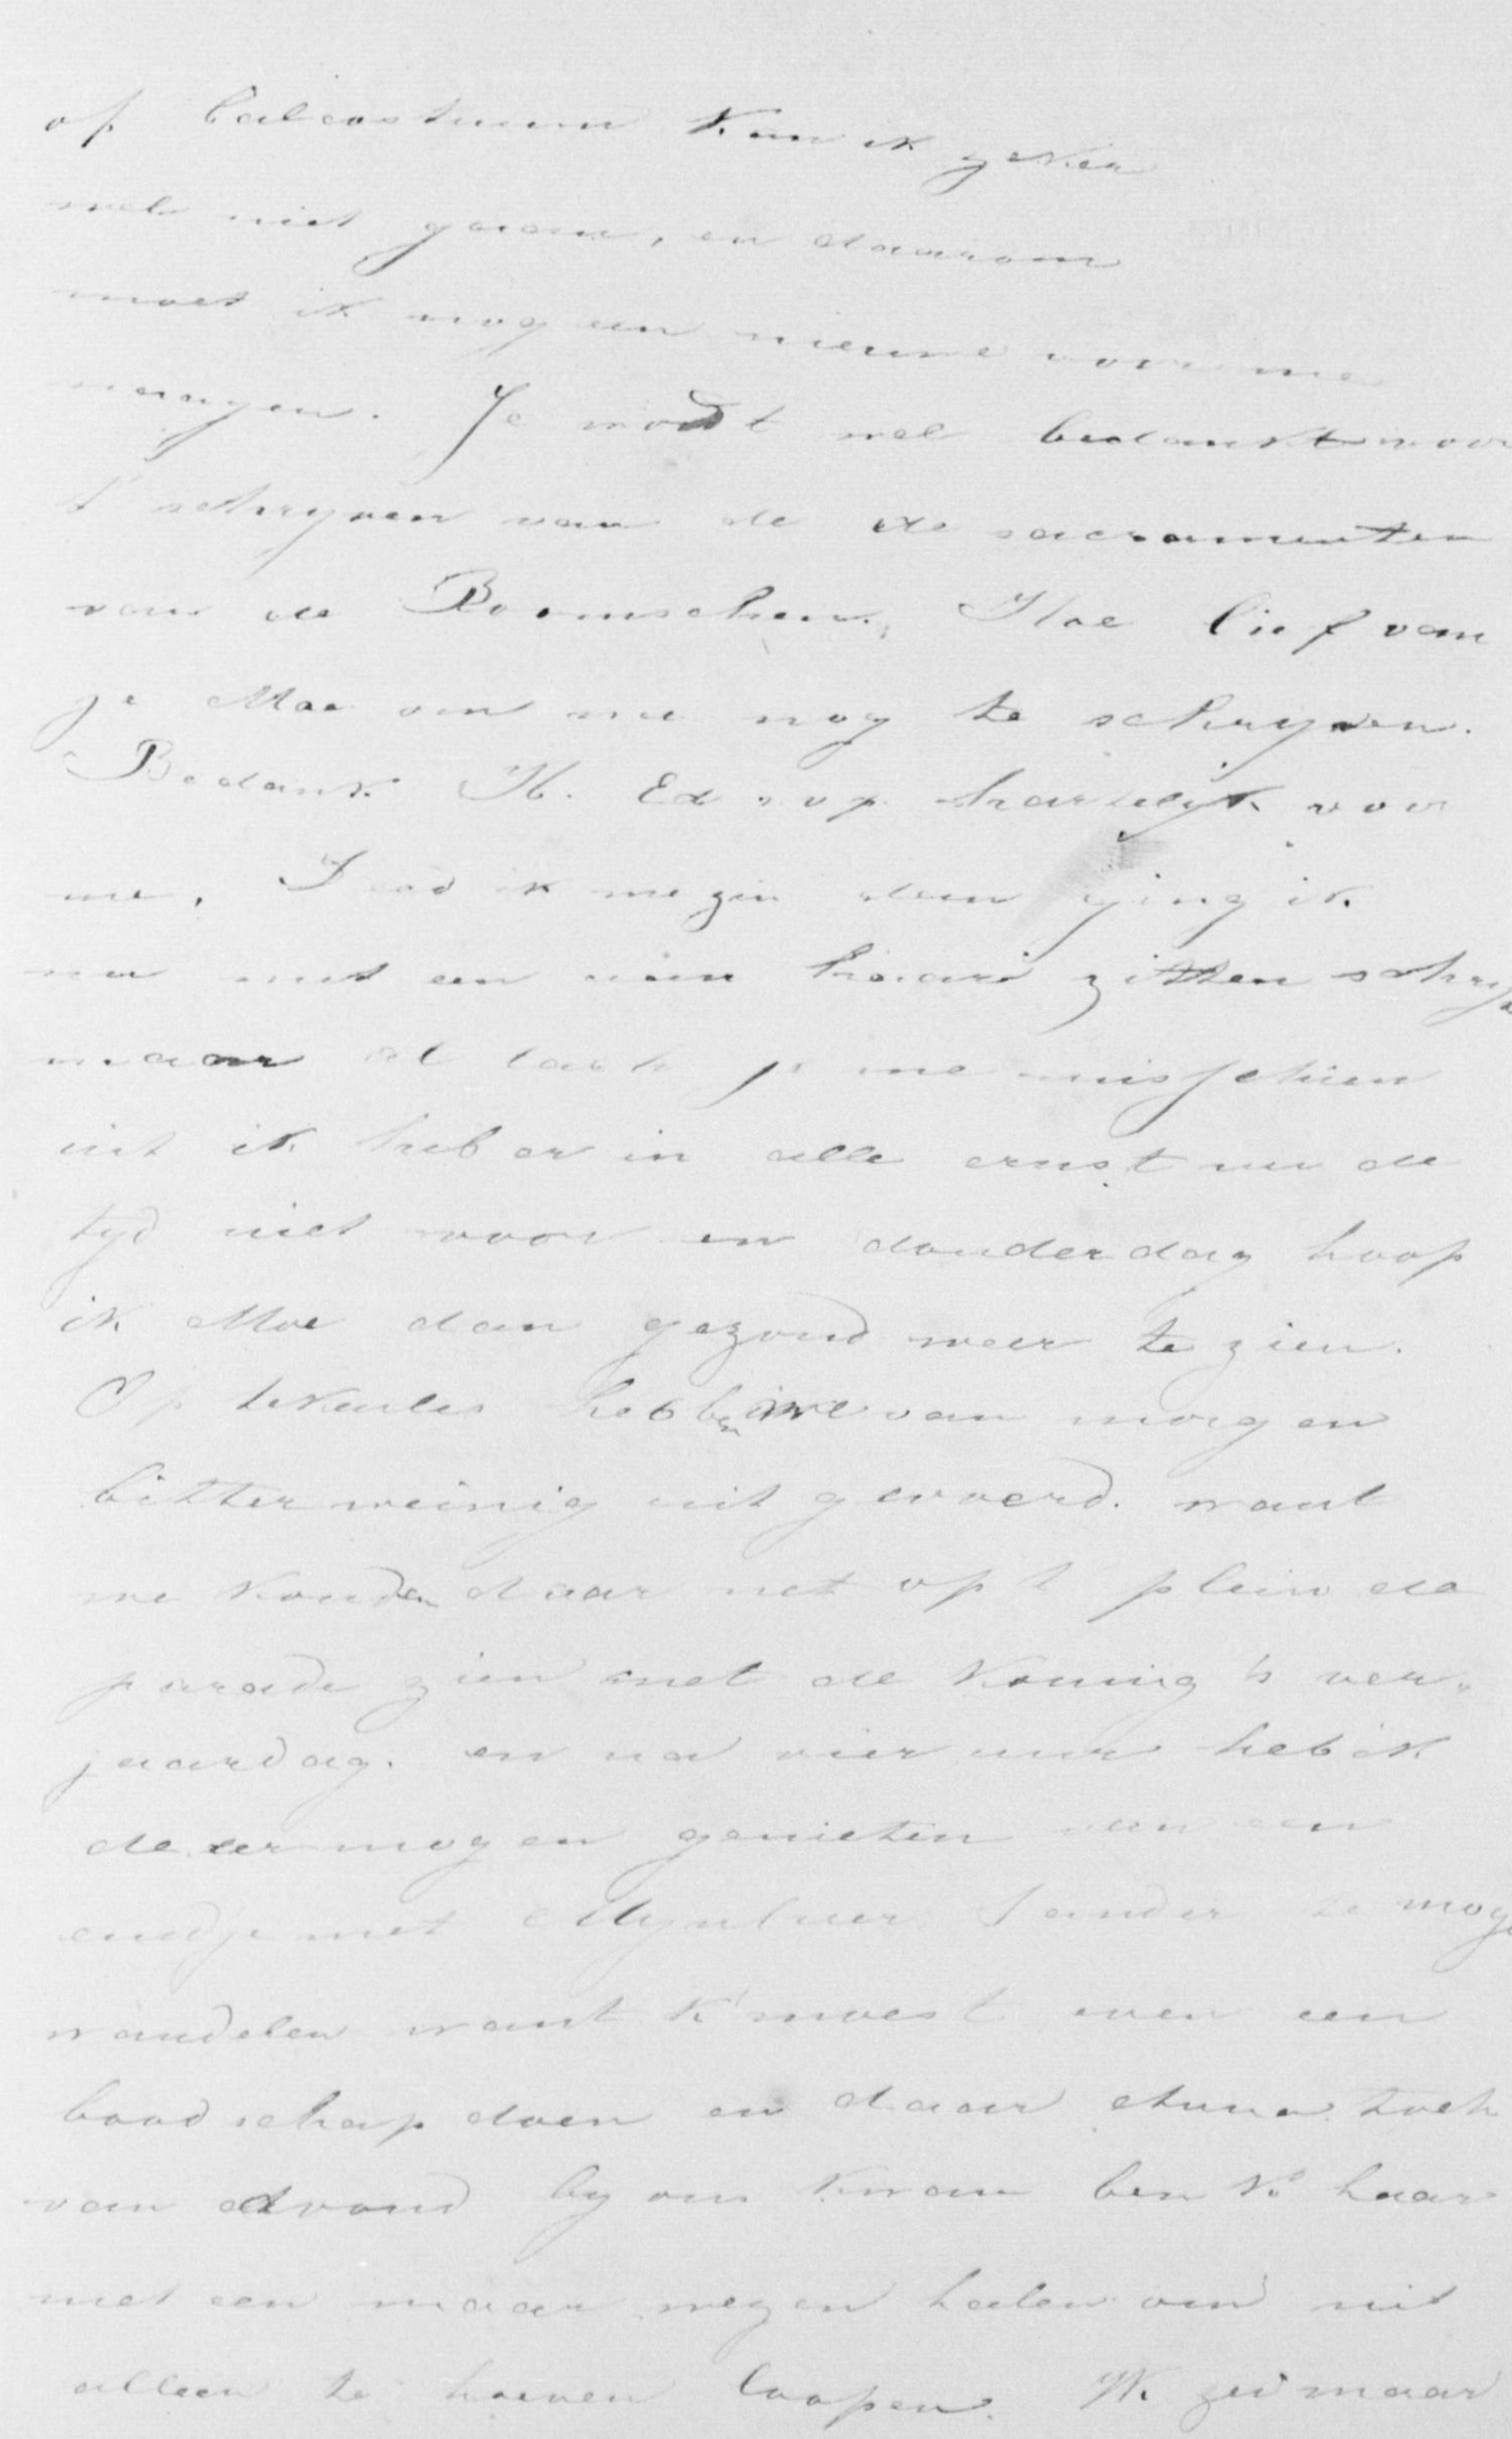 of balcostuum kan ik zeker
wel niet gaan, en daarom
moet ik nog een nieuwe voor me
Je wordt wel bedankt voor
t' schryven van de de sacramenten
van de Roomschen, Hoe lief van
je Moe om me nog te schryven.
Bedank H. Ed. hartelijk voor
me. Had ik me zin dan ging ik
nu met een zitten schryv
maar al lach je me misschien
uit ik heb er in alle ernst nu de
tyd niet voor en donderdag hoop
ik Moe dan gezond weer te zien.
Op hebben we van morgen
bitter weinig uit gevoerd. want
we konden daar net op t plein de
parade zien met de Koning's ver„
jaardag. en na vier uur heb ik
de eer mogen genieten van een
endje met Mynheer Sander te moge
wandelen want k' moest even een
boodschap doen en daar toch
van avond by ons kwam ben k' haar
met een maar wezen halen om niet
alleen te hoeven loopen. Ik zei maar